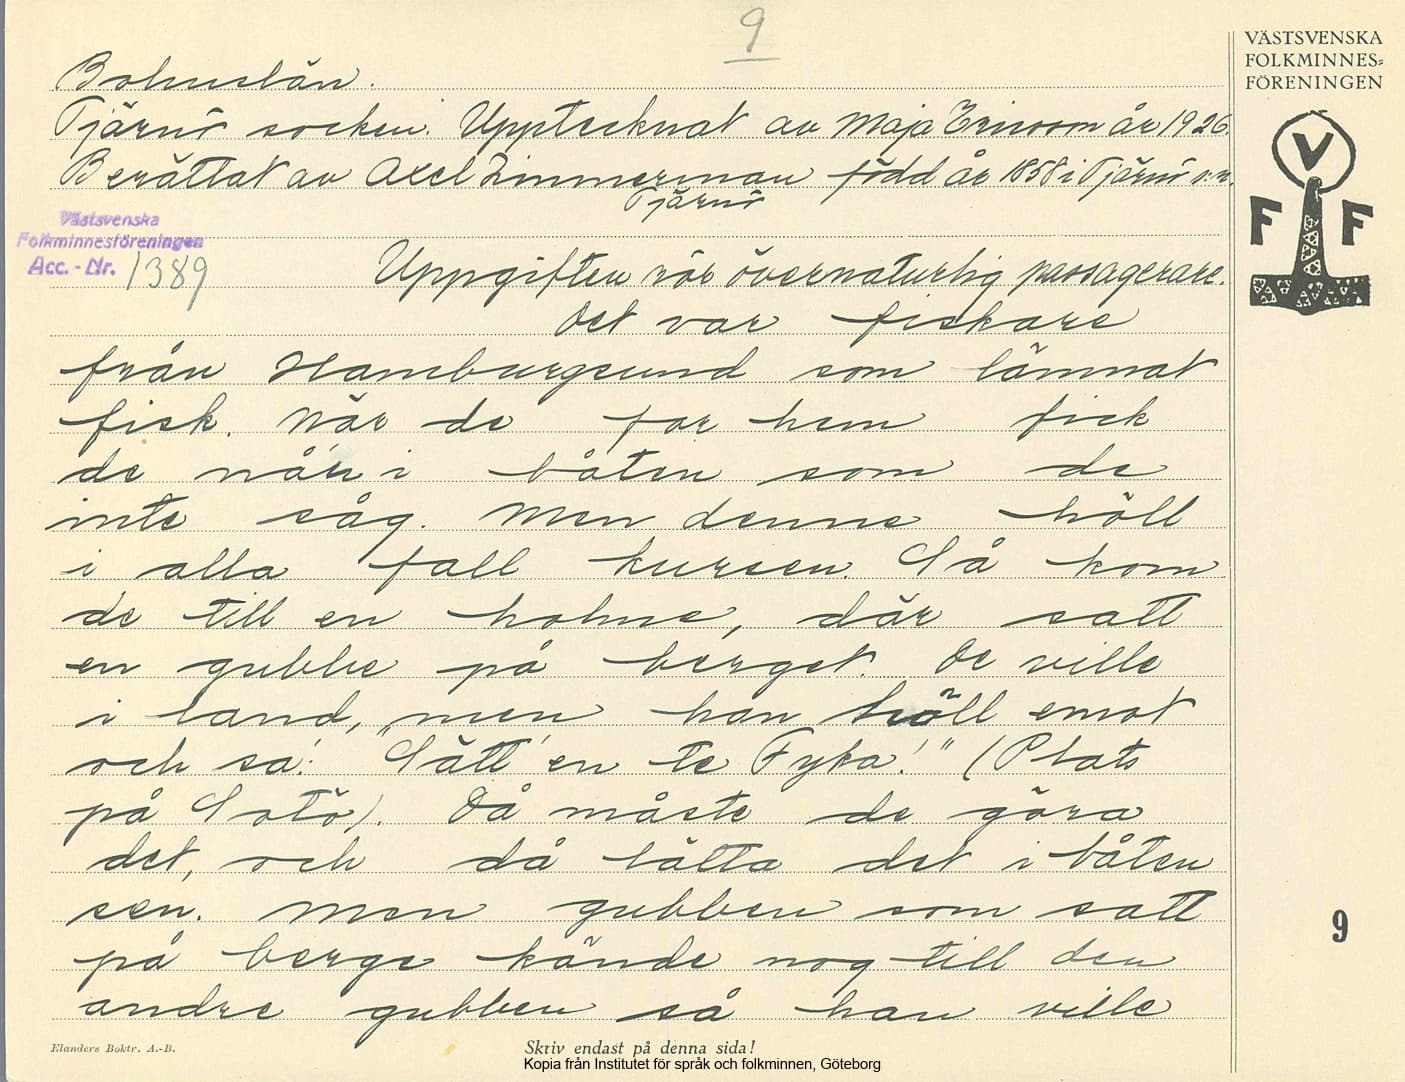 9
VÄSTSVENSKA
FOLKMINNES=
FÖRENINGEN
V
F F
Bohuslän.
Tjärnö socken. Upptecknat av Maja Ericson år 1926
Berättat av Axel Zimmerman född år 1858 i Tjärnö s:n.
Tjärnö
Västsvenska
Folkminnesföreningen
Acc.-Nr. 1389
Uppgiften rör övernaturlig passagerare.
Det var fiskare
från Hamburgsund som lämnat
fisk. När de for hem fick
de når i båten som de
inte såg. Men denne höll
i alla fall kursen. Så kom
de till en holme, där satt
en gubbe på berget. De ville
i land, men han höll emot
och sa: "Sätt 'en te Fyka!" (Plats
på Sotö). Då måste de göra
det, och då lätta det i båten
sen. Men gubben som satt
på berge kände nog till den
andre gubben så han ville
9
Elanders Boktr. A.-B.
Skriv endast på denna sida!
Kopia från Institutet för språk och folkminnen, Göteborg